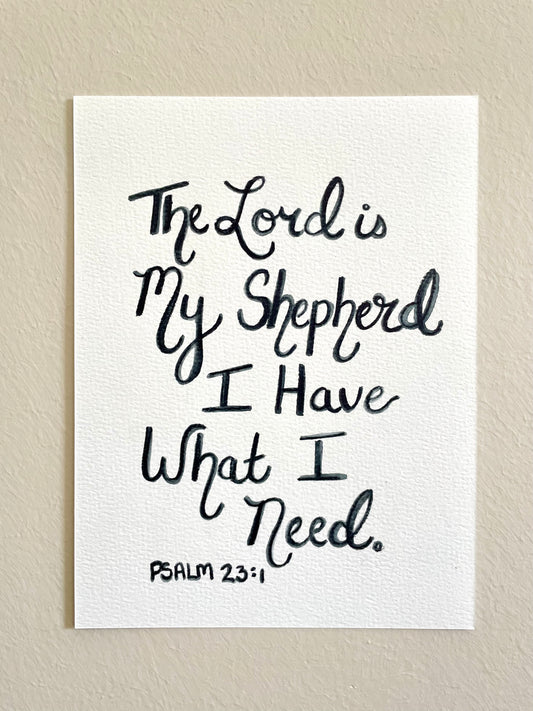 The Lord is
My Shepherd
I Have
What I
Need.
PSALM 23:1